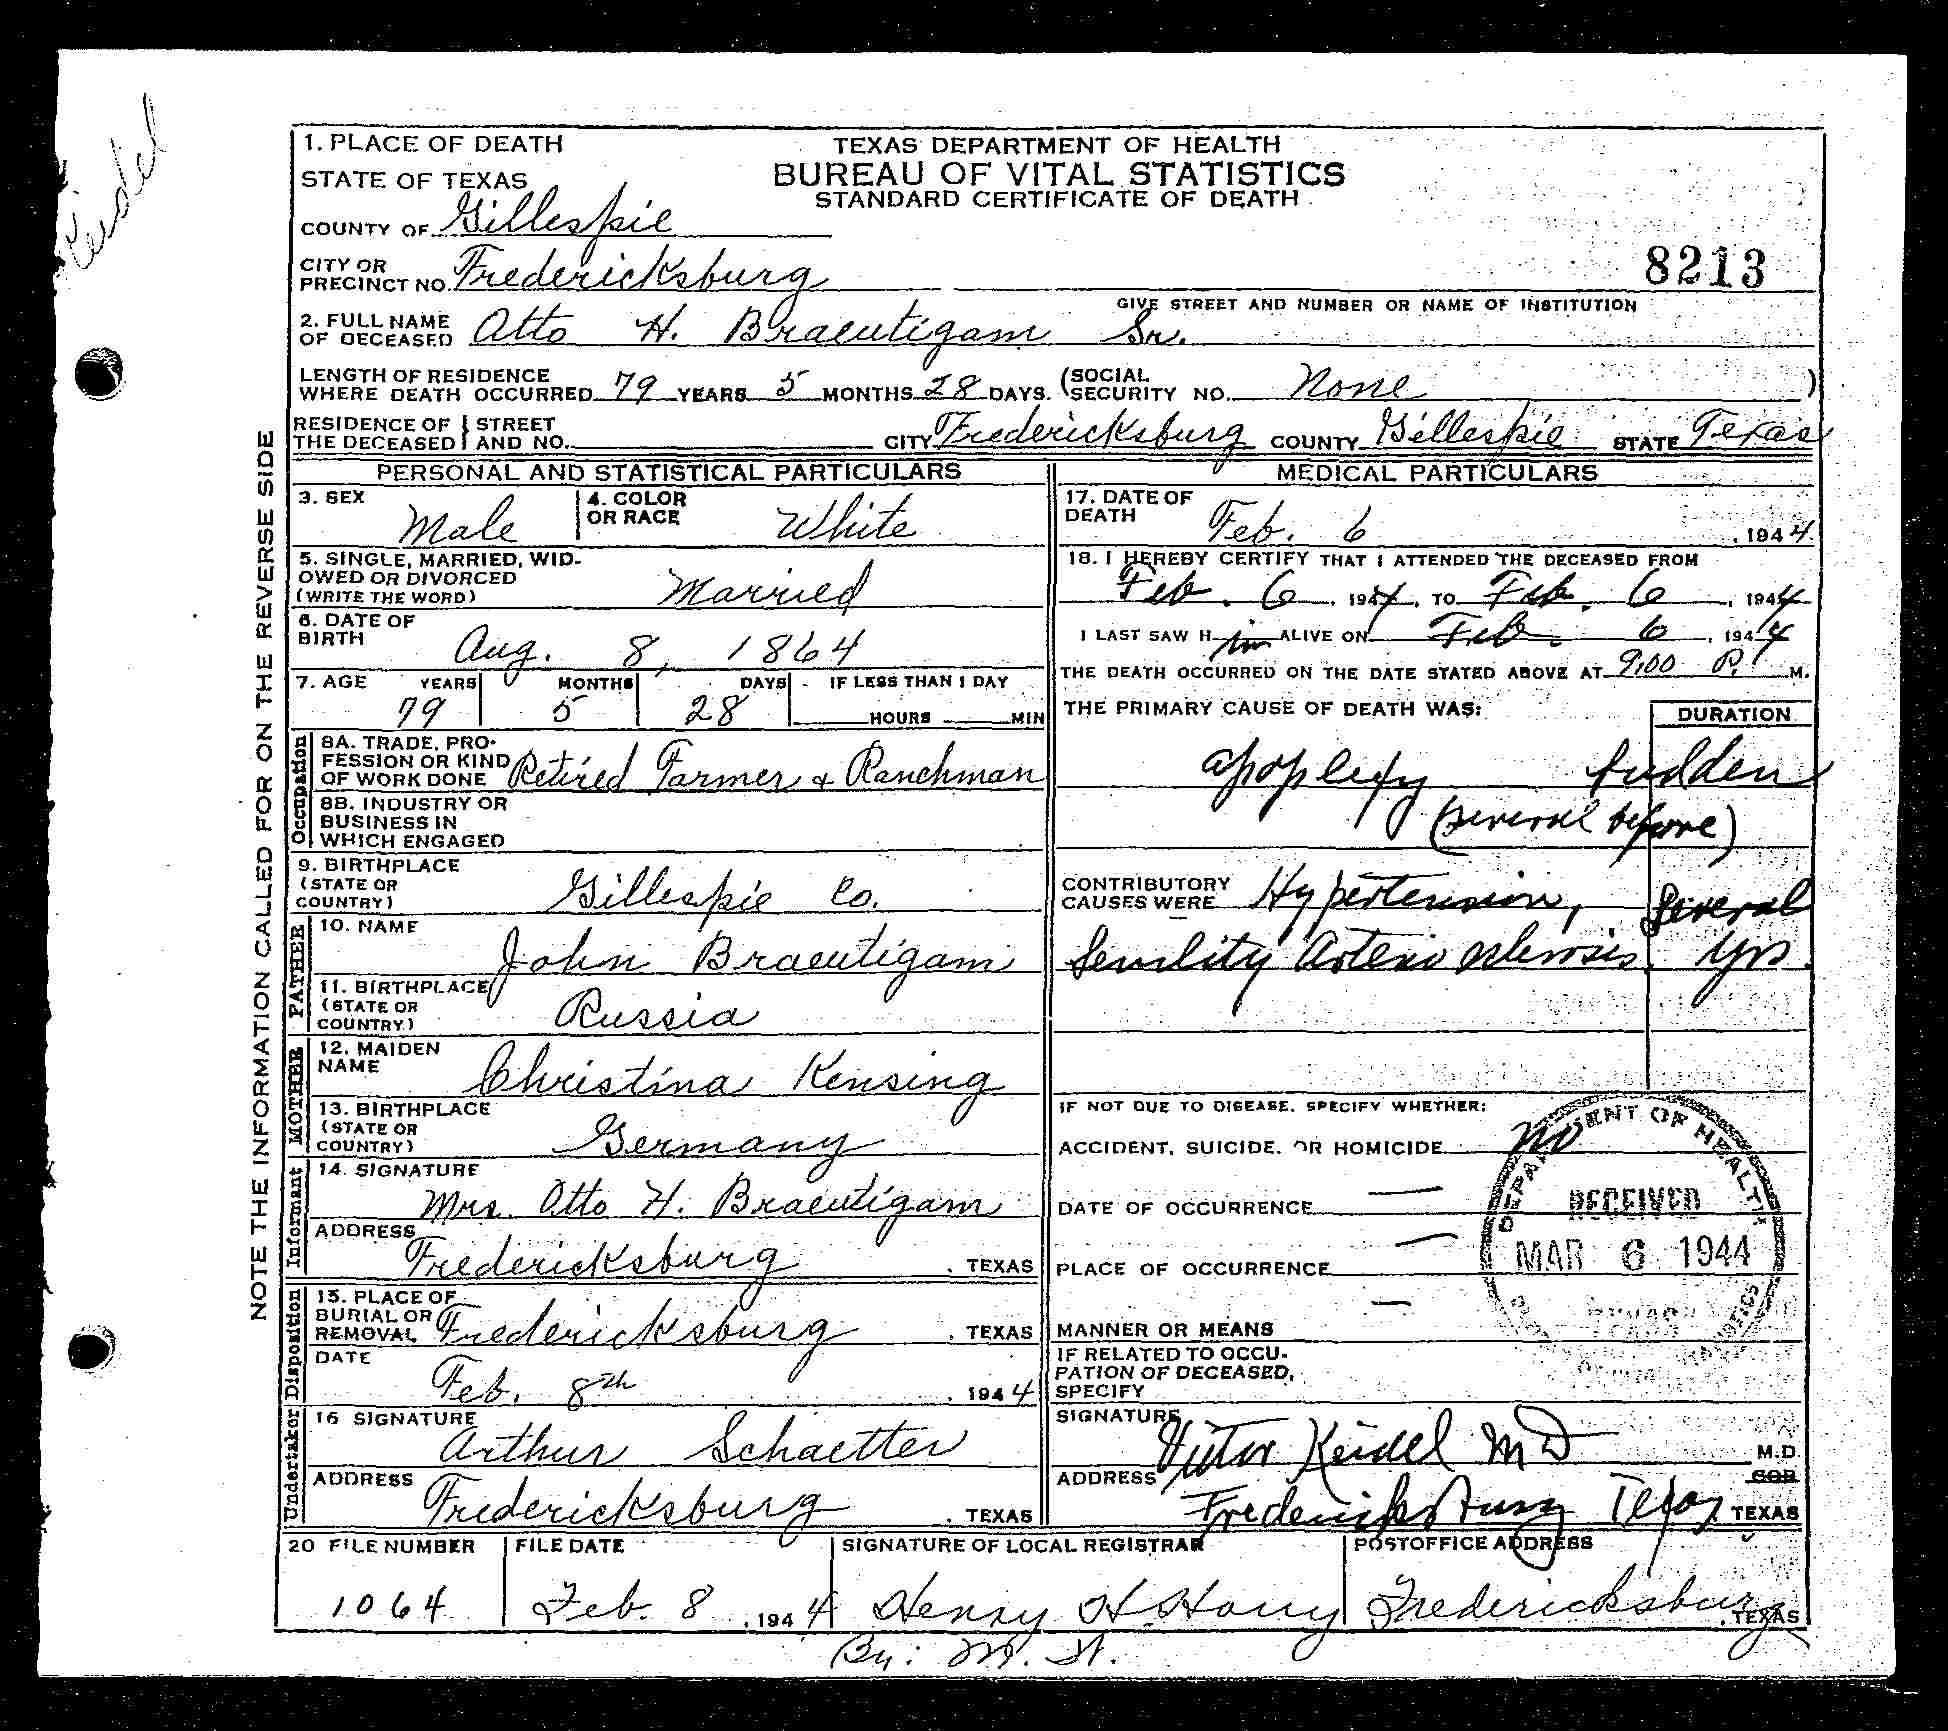 Keidel
1. PLACE OF DEATH
STATE OF TEXAS
COUNTY OF Gillespie
CITY OR PRECINCT NO. Fredericksburg
TEXAS DEPARTMENT OF HEALTH
BUREAU OF VITAL STATISTICS
STANDARD CERTIFICATE OF DEATH
8213
GIVE STREET AND NUMBER OR NAME OF INSTITUTION
2. FULL NAME OF DECEASED Otto H. Braeutigam Sr.
LENGTH OF RESIDENCE WHERE DEATH OCCURRED 79 YEARS 5 MONTHS 28 DAYS. (SOCIAL SECURITY NO. None )
RESIDENCE OF THE DECEASED STREET AND NO. CITY Fredericksburg COUNTY Gillespie STATE Texas
NOTE THE INFORMATION CALLED FOR ON THE REVERSE SIDE
PERSONAL AND STATISTICAL PARTICULARS
3. SEX Male 4. COLOR OR RACE White
5. SINGLE, MARRIED, WIDOWED OR DIVORCED (WRITE THE WORD) Married
6. DATE OF BIRTH Aug. 8, 1864
7. AGE YEARS MONTHS DAYS IF LESS THAN 1 DAY
79 5 28 HOURS MIN
Occupation
8A. TRADE, PROFESSION OR KIND OF WORK DONE Retired Farmer & Ranchman
8B. INDUSTRY OR BUSINESS IN WHICH ENGAGED
9. BIRTHPLACE (STATE OR COUNTRY) Gillespie Co.
FATHER
10. NAME John Braeutigam
11. BIRTHPLACE (STATE OR COUNTRY) Russia
MOTHER
12. MAIDEN NAME Christina Kensing
13. BIRTHPLACE (STATE OR COUNTRY) Germany
Informant
14. SIGNATURE Mrs. Otto H. Braeutigam
ADDRESS Fredericksburg, TEXAS
Disposition
15. PLACE OF BURIAL OR REMOVAL Fredericksburg, TEXAS
DATE Feb. 8th, 1944
Undertaker
16 SIGNATURE Arthur Schaetter
ADDRESS Fredericksburg, TEXAS
MEDICAL PARTICULARS
17. DATE OF DEATH Feb. 6, 1944
18. I HEREBY CERTIFY THAT I ATTENDED THE DECEASED FROM
Feb. 6, 1944, TO Feb. 6, 1944
I LAST SAW H im ALIVE ON Feb. 6, 1944
THE DEATH OCCURRED ON THE DATE STATED ABOVE AT 9:00 P. M.
THE PRIMARY CAUSE OF DEATH WAS: DURATION
apoplexy sudden
(several before)
CONTRIBUTORY CAUSES WERE Hypertension, Several
Senility Arterio sclerosis. yrs.
IF NOT DUE TO DISEASE, SPECIFY WHETHER:
ACCIDENT, SUICIDE, OR HOMICIDE no
DATE OF OCCURRENCE —
PLACE OF OCCURRENCE —
MANNER OR MEANS —
IF RELATED TO OCCUPATION OF DECEASED, SPECIFY
DEPARTMENT OF HEALTH
RECEIVED
MAR 6 1944
TEXAS
SIGNATURE Victor Keidel MD M.D.
COR
ADDRESS Fredericksburg Texas TEXAS
20 FILE NUMBER FILE DATE SIGNATURE OF LOCAL REGISTRAR POSTOFFICE ADDRESS
1064 Feb. 8, 1944 Henry H Fredericksburg, TEXAS
By: M. H.